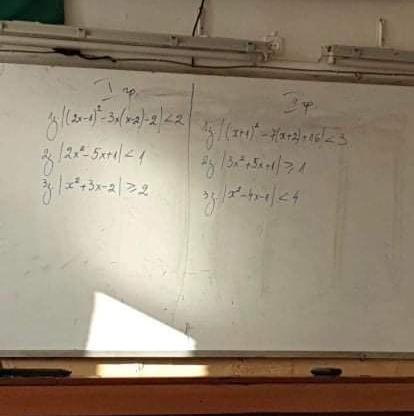 I гр.
1з |(2x-1)²-3x(x-2)-2|<2
2з |2x²-5x+1|<1
3з |x²+3x-2|≥2
II гр.
1з |(x+1)²-7(x+2)+16|<3
2з |3x²+5x+1|≥1
3з |x²-4x-1|<4